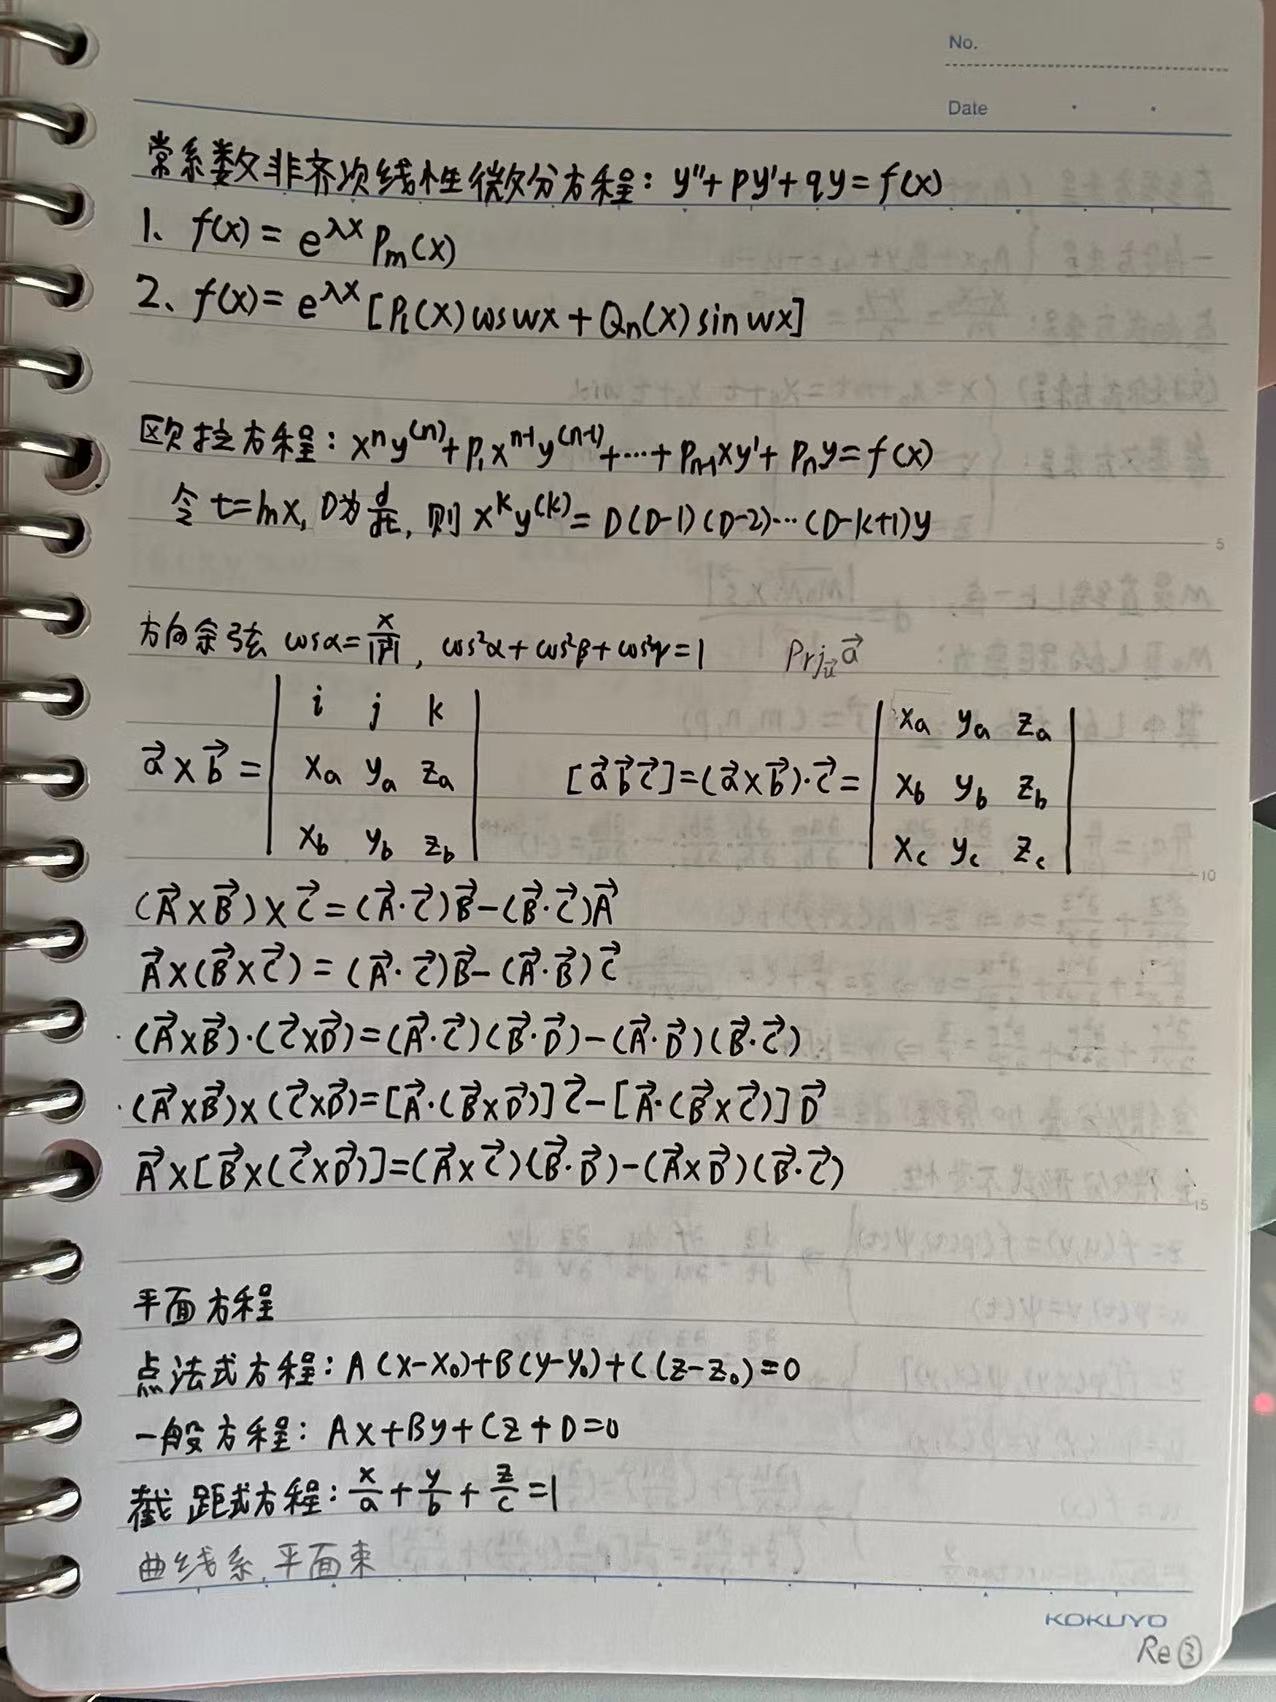 No.
Date
常系数非齐次线性微分方程: y''+py'+qy=f(x)
1、f(x)=e^{λx}P_m(x)
2、f(x)=e^{λx}[P_l(x)cosωx+Q_n(x)sinωx]
欧拉方程: x^n y^{(n)}+p_1x^{n-1}y^{(n-1)}+…+p_{n-1}xy'+p_ny=f(x)
令 t=lnx, D为\frac{d}{dt}, 则 x^k y^{(k)}=D(D-1)(D-2)…(D-k+1)y
方向余弦 cosα=\frac{x}{|\vec{r}|}, cos²α+cos²β+cos²γ=1 Prj_{\vec{u}}\vec{a}
\vec{a}×\vec{b}=\begin{vmatrix} i & j & k \\ x_a & y_a & z_a \\ x_b & y_b & z_b \end{vmatrix} [\vec{a}\vec{b}\vec{c}]=(\vec{a}×\vec{b})·\vec{c}=\begin{vmatrix} x_a & y_a & z_a \\ x_b & y_b & z_b \\ x_c & y_c & z_c \end{vmatrix}
(\vec{A}×\vec{B})×\vec{C}=(\vec{A}·\vec{C})\vec{B}-(\vec{B}·\vec{C})\vec{A}
\vec{A}×(\vec{B}×\vec{C})=(\vec{A}·\vec{C})\vec{B}-(\vec{A}·\vec{B})\vec{C}
·(\vec{A}×\vec{B})·(\vec{C}×\vec{D})=(\vec{A}·\vec{C})(\vec{B}·\vec{D})-(\vec{A}·\vec{D})(\vec{B}·\vec{C})
·(\vec{A}×\vec{B})×(\vec{C}×\vec{D})=[\vec{A}·(\vec{B}×\vec{D})]\vec{C}-[\vec{A}·(\vec{B}×\vec{C})]\vec{D}
\vec{A}×[\vec{B}×(\vec{C}×\vec{D})]=(\vec{A}×\vec{C})(\vec{B}·\vec{D})-(\vec{A}×\vec{D})(\vec{B}·\vec{C})
平面方程
点法式方程: A(x-x_0)+B(y-y_0)+C(z-z_0)=0
一般方程: Ax+By+Cz+D=0
截距式方程: \frac{x}{a}+\frac{y}{b}+\frac{z}{c}=1
曲线系,平面束
KOKUYO
Re③
5
10
15